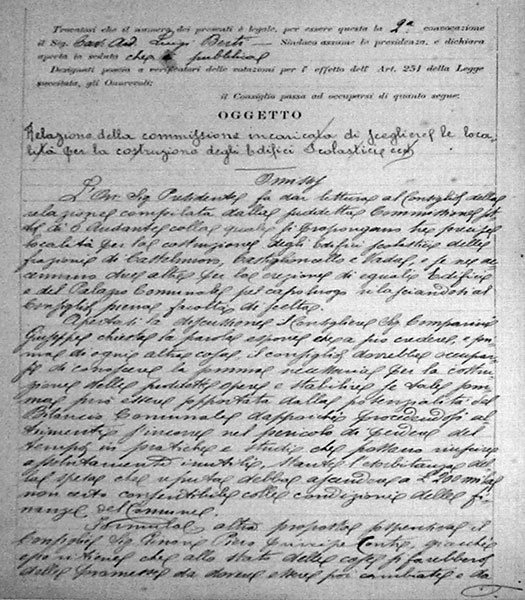 Trovatosi che il numero dei presenti è legale, per essere questa la 2ª convocazione
il Sig. Cav. Avv. Luigi Berti Sindaco assume la presidenza, e dichiara
aperta la seduta che è pubblica
Designati poscia a verificatori delle votazioni per l' effetto dell' Art. 251 della Legge
succitata, gli Onorevoli:
il Consiglio passa ad occuparsi di quanto segue:
OGGETTO
Relazione della commissione incaricata di scegliere le loca-
lità per la costruzione degli Edifici Scolastici
Omissis
L'On. Sig. Presidente fa dar lettura al Consiglio della
relazione compilata dalla suddetta Commissione
di 6 Andante colla quale si propongano tre precise
località per la costruzione degli Edifici scolastici delle
frazioni di Castelnuovo, Castiglioncello e Vada, e se ne
due altre per la erezione di eguale Edificio
e del Palazzo Comunale pel capoluogo rilasciandosi al
Consiglio piena facoltà di scelta.
Apertasi la discussione il Consigliere Sig. Companini
Giuseppe chiesta la parola espone che a più credere, e pri-
ma di ogni altra cosa, il consiglio dovrebbe occupar-
si di conoscere la somma necessaria per la costru-
zione delle suddette opere e stabilire se tale som-
ma può essere sopportata dalla potenzialità del
Bilancio Comunale dappoiché procedendosi al
trimenti s'incorre nel pericolo di perdere del
tempo in pratiche e studi che possono riuscire
affatto inutili, stante l'esorbitanza del
la spesa che
non certo consentibile colle condizioni delle fi-
nanze del Comune.
Formulata altra proposta sospensiva il
Consigliere Sig. Ginori Piero Principe Conti, giacché
che allo stato delle cose si farebbero
delle promesse da dovere essere poi cambiate e da